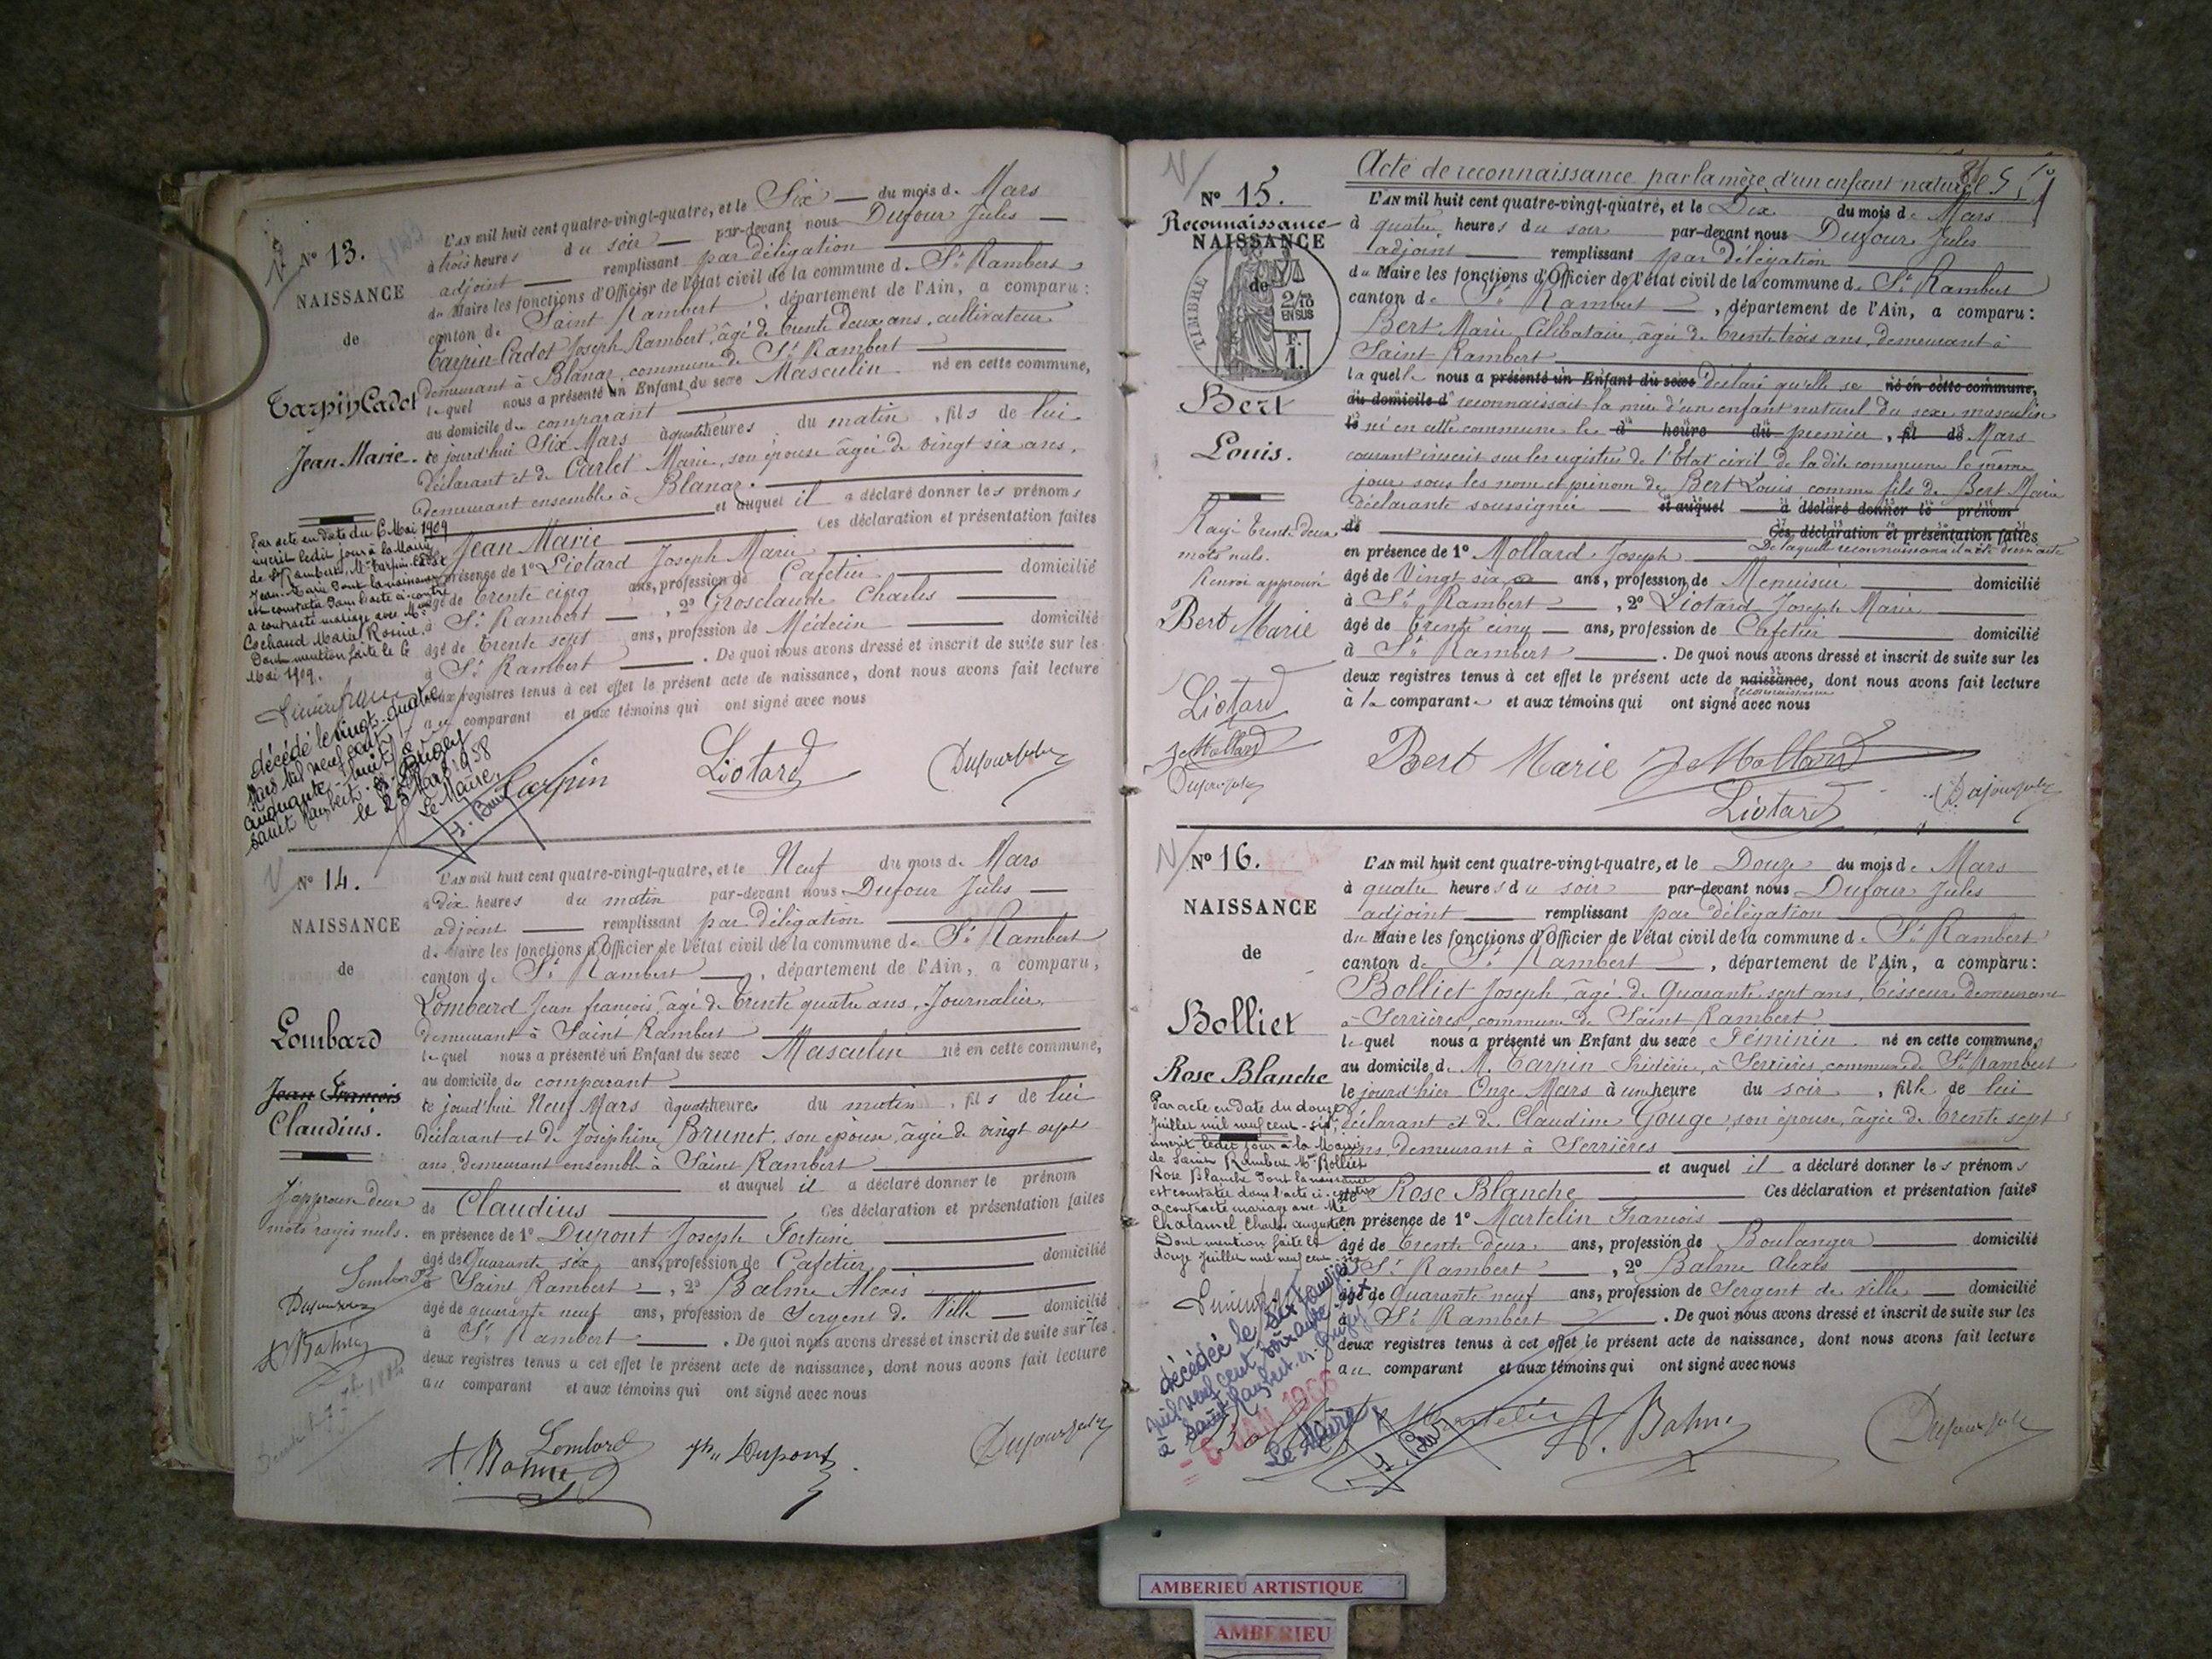 N° 13.
NAISSANCE
de
Tarpin Cadot
Jean Marie.
Par acte en date du 6 Mai 1909
inscrit ledit jour à la Mairie
de St Rambert, Mr Tarpin-Cadot
Jean-Marie dont la naissance
est constatée dans l'acte ci-contre
a contracté mariage avec Melle
Cochaud Marie Rosine.
Dont mention faite le 6
Mai 1909.
décédé le vingt-quatre
Mars Mil neuf cent
cinquante-huit à
Saint Rambert-en-Bugey
le 25 Mars 1958
Le Maire,
L'AN mil huit cent quatre-vingt-quatre, et le Six du mois de Mars
à trois heures du soir par-devant nous Dufour Jules
adjoint remplissant par délégation
du Maire les fonctions d'Officier de l'état civil de la commune de St Rambert
canton de Saint Rambert, département de l'Ain, a comparu:
Tarpin-Cadot Joseph Rambert, âgé de trente deux ans, cultivateur
demeurant à Blanaz, commune de St Rambert
lequel nous a présenté un Enfant du sexe Masculin né en cette commune,
au domicile du comparant
ce jourd'hui Six Mars à quatre heures du matin, fils de lui
déclarant et de Carlet Marie, son épouse âgée de vingt six ans,
demeurant ensemble à Blanaz.
et auquel il a déclaré donner les prénoms
de Jean Marie Ces déclaration et présentation faites
en présence de 1° Liotard Joseph Marie
âgé de trente cinq ans, profession de Cafetier domicilié
à St Rambert, 2° Grosclaude Charles
âgé de trente sept ans, profession de Médecin domicilié
à St Rambert. De quoi nous avons dressé et inscrit de suite sur les
deux registres tenus à cet effet le présent acte de naissance, dont nous avons fait lecture
au comparant et aux témoins qui ont signé avec nous
Tarpin Liotard Dufour Jules
N° 14.
NAISSANCE
de
Lombard
Jean François
Claudius.
J'approuve deux
mots rayés nuls.
Lombard
Dufour Jules
A. Balme
L'AN mil huit cent quatre-vingt-quatre, et le Neuf du mois de Mars
à dix heures du matin par-devant nous Dufour Jules
adjoint remplissant par délégation
du Maire les fonctions d'Officier de l'état civil de la commune de St Rambert
canton de St Rambert, département de l'Ain, a comparu,
Lombard Jean françois, âgé de trente quatre ans, Journalier,
demeurant à Saint Rambert
lequel nous a présenté un Enfant du sexe Masculin né en cette commune,
au domicile du comparant
ce jourd'hui Neuf Mars à quatre heures du matin, fils de lui
déclarant et de Joséphine Brunet, son épouse, âgée de vingt sept
ans, demeurant ensemble à Saint Rambert
et auquel il a déclaré donner le prénom
de Claudius Ces déclaration et présentation faites
en présence de 1° Dupont Joseph Fortuné
âgé de Quarante six ans, profession de Cafetier domicilié
à Saint Rambert, 2° Balme Alexis
âgé de quarante neuf ans, profession de Sergent de Ville domicilié
à St Rambert. De quoi nous avons dressé et inscrit de suite sur les
deux registres tenus à cet effet le présent acte de naissance, dont nous avons fait lecture
au comparant et aux témoins qui ont signé avec nous
Lombard
A. Balme Jh Dupont Dufour Jules
Acte de reconnaissance par la mère d'un enfant naturel
N° 15.
Reconnaissance
NAISSANCE
de
TIMBRE
2/10
EN SUS
F.
1.
Bert
Louis.
Rayé trente deux
mots nuls.
Renvoi approuvé
Bert Marie
Liotard
J. Mollard
Dufour Jules
L'AN mil huit cent quatre-vingt-quatre, et le Dix du mois de Mars
à quatre heures du soir par-devant nous Dufour Jules
adjoint remplissant par délégation
du Maire les fonctions d'Officier de l'état civil de la commune de St Rambert
canton de St Rambert, département de l'Ain, a comparu:
Bert Marie, Célibataire, âgée de trente trois ans, demeurant à
Saint Rambert
laquelle nous a présenté un Enfant du sexe déclaré qu'elle se né en cette commune,
au domicile d reconnaissait la mère d'un enfant naturel du sexe masculin
le né en cette commune le à heure du premier, fil de Mars
courant inscrit sur les registres de l'Etat civil de la dite commune le même
jour sous les nom et prénom de Bert Louis comme fils de Bert Marie
déclarante soussignée et auquel a déclaré donner le prénom
de Ces déclaration et présentation faites
De laquelle reconnaissance
en présence de 1° Mollard Joseph
âgé de Vingt six ans, profession de Menuisier domicilié
à St Rambert, 2° Liotard Joseph Marie
âgé de trente cinq ans, profession de Cafetier domicilié
à St Rambert. De quoi nous avons dressé et inscrit de suite sur les
deux registres tenus à cet effet le présent acte de naissance, dont nous avons fait lecture
reconnaissance
à la comparante et aux témoins qui ont signé avec nous
Bert Marie J. Mollard
Liotard Dufour Jules
N° 16.
NAISSANCE
de
Bolliet
Rose Blanche
Par acte en date du douze
Juillet mil neuf cent-six,
inscrit ledit jour à la Mairie
de Saint Rambert Melle Bolliet
Rose Blanche dont la naissance
est constatée dans l'acte ci-contre
a contracté mariage avec Mr
Chalamel Charles Auguste
Dont mention faite le
douze Juillet mil neuf cent six
décédée le six Janvier
mil neuf cent soixante six
à Saint Rambert-en-Bugey
- 6 JAN 1966
Le Maire,
L'AN mil huit cent quatre-vingt-quatre, et le Douze du mois de Mars
à quatre heures du soir par-devant nous Dufour Jules
adjoint remplissant par délégation
du Maire les fonctions d'Officier de l'état civil de la commune de St Rambert
canton de St Rambert, département de l'Ain, a comparu:
Bolliet Joseph, âgé de Quarante sept ans, tisseur demeurant
à Serrières, commune de Saint Rambert
lequel nous a présenté un Enfant du sexe Féminin né en cette commune,
au domicile de M. Tarpin Frédéric, à Serrières, commune de St Rambert
le jourd'hier Onze Mars à une heure du soir, fille de lui
déclarant et de Claudine Gouge, son épouse, âgée de trente sept
ans, demeurant à Serrières
et auquel il a déclaré donner les prénoms
de Rose Blanche Ces déclaration et présentation faites
en présence de 1° Martelin François
âgé de trente deux ans, profession de Boulanger domicilié
à St Rambert, 2° Balme Alexis
âgé de Quarante neuf ans, profession de Sergent de ville domicilié
à St Rambert. De quoi nous avons dressé et inscrit de suite sur les
deux registres tenus à cet effet le présent acte de naissance, dont nous avons fait lecture
au comparant et aux témoins qui ont signé avec nous
Martelin A. Balme Dufour Jules
AMBERIEU ARTISTIQUE
AMBERIEU